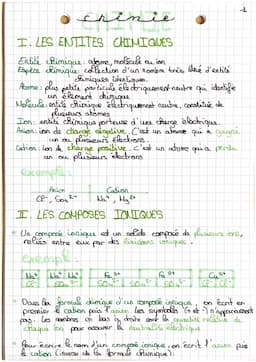 1
chimie
I. LES ENTITES CHIMIQUES
Entité chimique: atome, molécule ou ion
Espèce chimique: collection d'un nombre très élevé d'entité
chimiques identiques.
Atome: plus petite particule électriquement neutre qui identifie
un élément chimique
Molécule: entité chimique électriquement neutre, constituée de
plusieurs atomes
Ion: entité chimique porteuse d'une charge électrique
Anion: ion de charge négative. C'est un atome qui a gagné
un ou plusieurs électrons.
Cation: ion de charge positive. C'est un atome qui a perdu
un ou plusieurs électrons
exemple:
Anion Cation
Cl-, SO4 2- Na+, Mg2+
II. LES COMPOSES IONIQUES
Un composé ionique est un solide composé de plusieurs ions,
reliés entre eux par des liaisons ioniques.
exemple:
Dans la formule chimique d'un composé ionique, on écrit en
premier le cation puis l'anion. Les symboles (+ et -) n'apparaissent
pas. Les nombres en bas à droite sont la quantité relative de
chaque ion pour assurer la neutralité électrique
Pour écrire le nom d'un composé ionique, on écrit l'anion puis
le cation (inverse de la formule chimique).